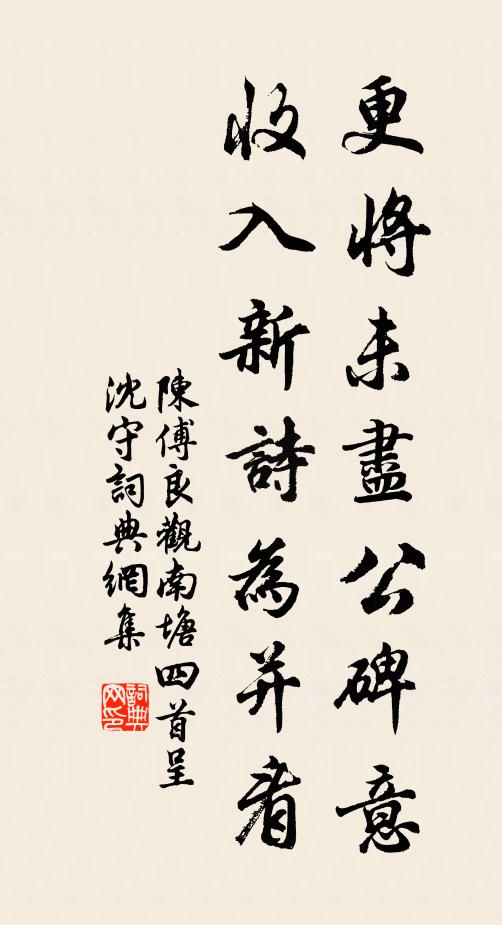 更將未盡公碑意
收入新詩為并看
陳傅良觀南塘四首呈
沈守詞典網集
詞典網印